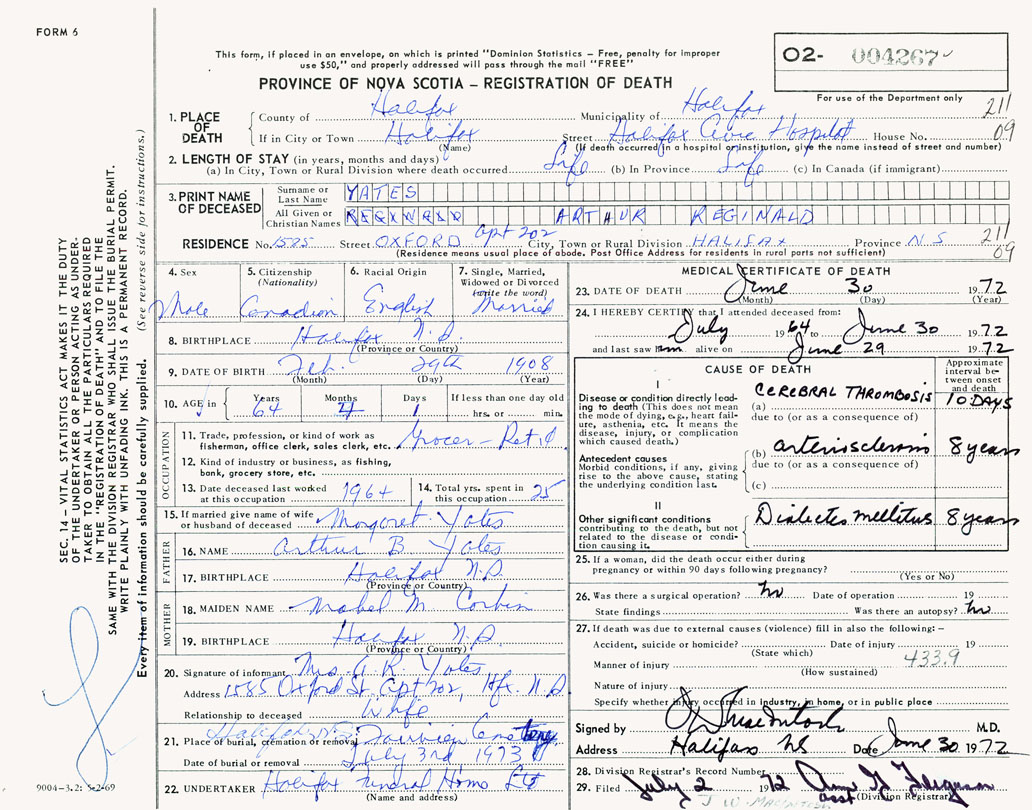 FORM 6
This form, if placed in an envelope, on which is printed "Dominion Statistics – Free, penalty for improper
use $50," and properly addressed will pass through the mail "FREE"
PROVINCE OF NOVA SCOTIA – REGISTRATION OF DEATH
O2- 004267
For use of the Department only
211
09
1. PLACE OF DEATH
County of Halifax Municipality of Halifax
If in City or Town Halifax Street Halifax Civic Hospital House No.
(Name) (If death occurred in a hospital or institution, give the name instead of street and number)
2. LENGTH OF STAY (in years, months and days)
(a) In City, Town or Rural Division where death occurred Life (b) In Province Life (c) In Canada (if immigrant)
3. PRINT NAME OF DECEASED
Surname or Last Name YATES
All Given or Christian Names ARTHUR REGINALD
RESIDENCE No. 1585 Street OXFORD Apt 202 City, Town or Rural Division HALIFAX Province N.S 211
09
(Residence means usual place of abode. Post Office Address for residents in rural parts not sufficient)
4. Sex Male
5. Citizenship (Nationality) Canadian
6. Racial Origin English
7. Single, Married, Widowed or Divorced (write the word) Married
8. BIRTHPLACE Halifax N.S.
(Province or Country)
9. DATE OF BIRTH Feb. 29th 1908
(Month) (Day) (Year)
10. AGE in Years 64 Months 4 Days 1 If less than one day old
hrs. or min.
OCCUPATION
11. Trade, profession, or kind of work as fisherman, office clerk, sales clerk, etc. Grocer – Ret'd
12. Kind of industry or business, as fishing, bank, grocery store, etc.
13. Date deceased last worked at this occupation 1964
14. Total yrs. spent in this occupation 25
15. If married give name of wife or husband of deceased Margaret Yates
FATHER
16. NAME Arthur B Yates
17. BIRTHPLACE Halifax N.S.
(Province or Country)
MOTHER
18. MAIDEN NAME Mabel M. Corbin
19. BIRTHPLACE Halifax N.S
(Province or Country)
20. Signature of informant Mrs. A. R. Yates
Address 1585 Oxford St. Apt 202, Hfx. N.S
Relationship to deceased Wife
21. Place of burial, cremation or removal Halifax NS Fairview Cemetery
Date of burial or removal July 3rd 1973
22. UNDERTAKER Halifax Funeral Home Ltd
(Name and address)
MEDICAL CERTIFICATE OF DEATH
23. DATE OF DEATH June 30 1972
(Month) (Day) (Year)
24. I HEREBY CERTIFY that I attended deceased from:
July 1964 to June 30 1972
and last saw him alive on June 29 1972
CAUSE OF DEATH
Approximate interval between onset and death
I
Disease or condition directly leading to death (This does not mean the mode of dying, e.g., heart failure, asthenia, etc. It means the disease, injury, or complication which caused death.)
(a) CEREBRAL THROMBOSIS 10 DAYS
due to (or as a consequence of)
Antecedent causes
Morbid conditions, if any, giving rise to the above cause, stating the underlying condition last.
(b) arteriosclerosis 8 years
due to (or as a consequence of)
(c)
II
Other significant conditions contributing to the death, but not related to the disease or condition causing it.
Diabetes mellitus 8 years
25. If a woman, did the death occur either during pregnancy or within 90 days following pregnancy?
(Yes or No)
26. Was there a surgical operation? no Date of operation 19
State findings Was there an autopsy? no
27. If death was due to external causes (violence) fill in also the following: –
Accident, suicide or homicide? Date of injury 19
(State which) 433.9
Manner of injury
(How sustained)
Nature of injury
Specify whether injury occurred in industry, in home, or in public place
Signed by M.D.
Address Halifax NS Date June 30 1972
28. Division Registrar's Record Number
29. Filed July 2 1972
(Division Registrar)
SEC. 14 – VITAL STATISTICS ACT MAKES IT THE DUTY
OF THE UNDERTAKER OR PERSON ACTING AS UNDER-
TAKER TO OBTAIN ALL THE PARTICULARS REQUIRED
IN THE "REGISTRATION OF DEATH" AND TO FILE THE
SAME WITH THE DIVISION REGISTRAR WHO SHALL ISSUE THE BURIAL PERMIT.
WRITE PLAINLY WITH UNFADING INK. THIS IS A PERMANENT RECORD.
Every item of information should be carefully supplied. (See reverse side for instructions.)
9004-3.2: 5-2-69